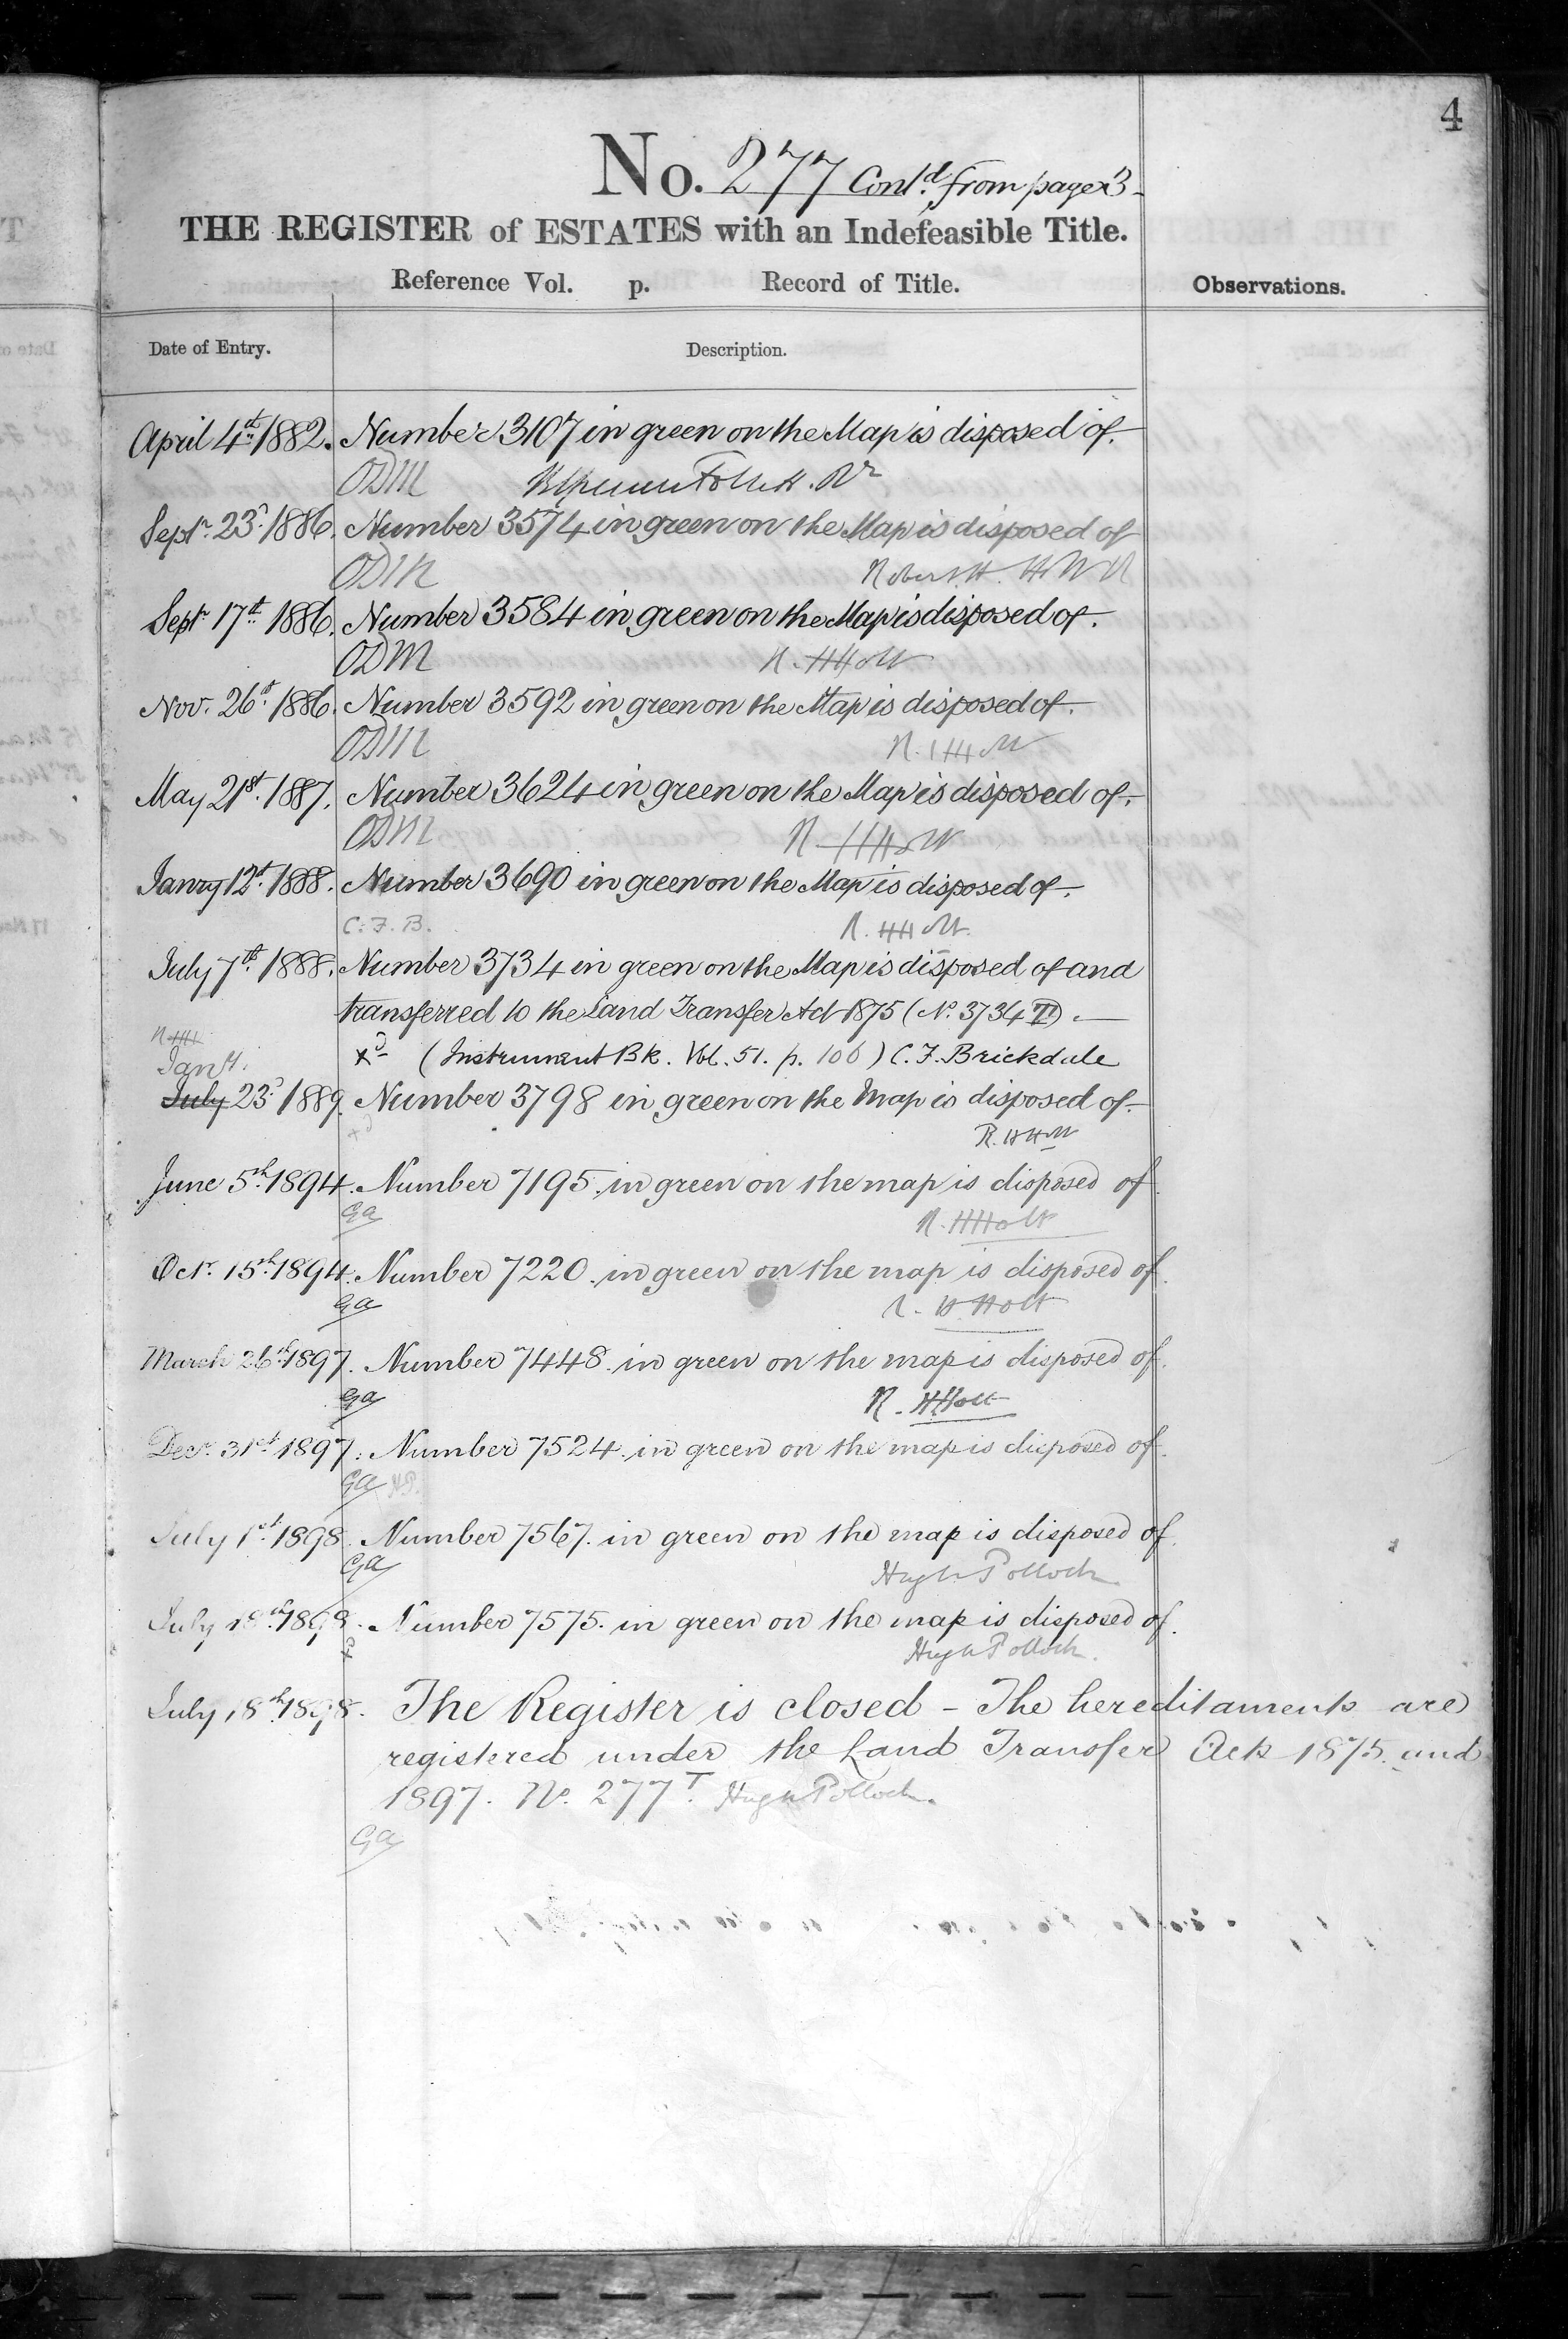 4
No. 277 Contd. from page 3
THE REGISTER of ESTATES with an Indefeasible Title.
Reference Vol. p. Record of Title.
Observations.
Date of Entry. Description.
April 4th 1882. Number 3107 in green on the Map is disposed of.
ODM Follett. Rr
Septr. 23d. 1886. Number 3574 in green on the Map is disposed of
ODM Robert H. Holt
Septr 17th 1886. Number 3584 in green on the Map is disposed of.
ODM R. H Holt
Nov. 26th 1886. Number 3592 in green on the Map is disposed of.
ODM R. H Holt
May 21st. 1887. Number 3624 in green on the Map is disposed of.
ODM R. H Holt
Janry 12th. 1888. Number 3690 in green on the Map is disposed of.
C. F. B. R. H Holt.
July 7th. 1888. Number 3734 in green on the Map is disposed of and
transferred to the Land Transfer Act 1875 (No. 3734 T).
(Instrument Bk. Vol. 51. p. 106) C. F. Brickdale
Jany.
July 23d. 1889. Number 3798 in green on the Map is disposed of.
R. H Holt
June 5th. 1894. Number 7195. in green on the map is disposed of.
Ga R. H Holt
Octr. 15th. 1894. Number 7220. in green on the map is disposed of.
Ga R. H Holt
March 26th 1897. Number 7448. in green on the map is disposed of.
Ga R. H Holt
Decr. 31st. 1897. Number 7524. in green on the map is disposed of.
Ga H.P.
July 1st. 1898. Number 7567. in green on the map is disposed of.
Ga Hugh Pollock
July 18th. 1898. Number 7575. in green on the map is disposed of.
Hugh Pollock.
July 18th. 1898. The Register is closed – The hereditaments are
registered under the Land Transfer Acts 1875. and
1897. No. 277 T. Hugh Pollock.
Ga